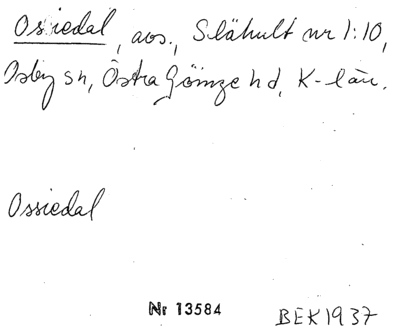 Ossiedal, avs., Slähult nr 1:10,
Osby sn, Östra Göinge hd, K-län.
Ossiedal
Nr 13584
BEK 1937